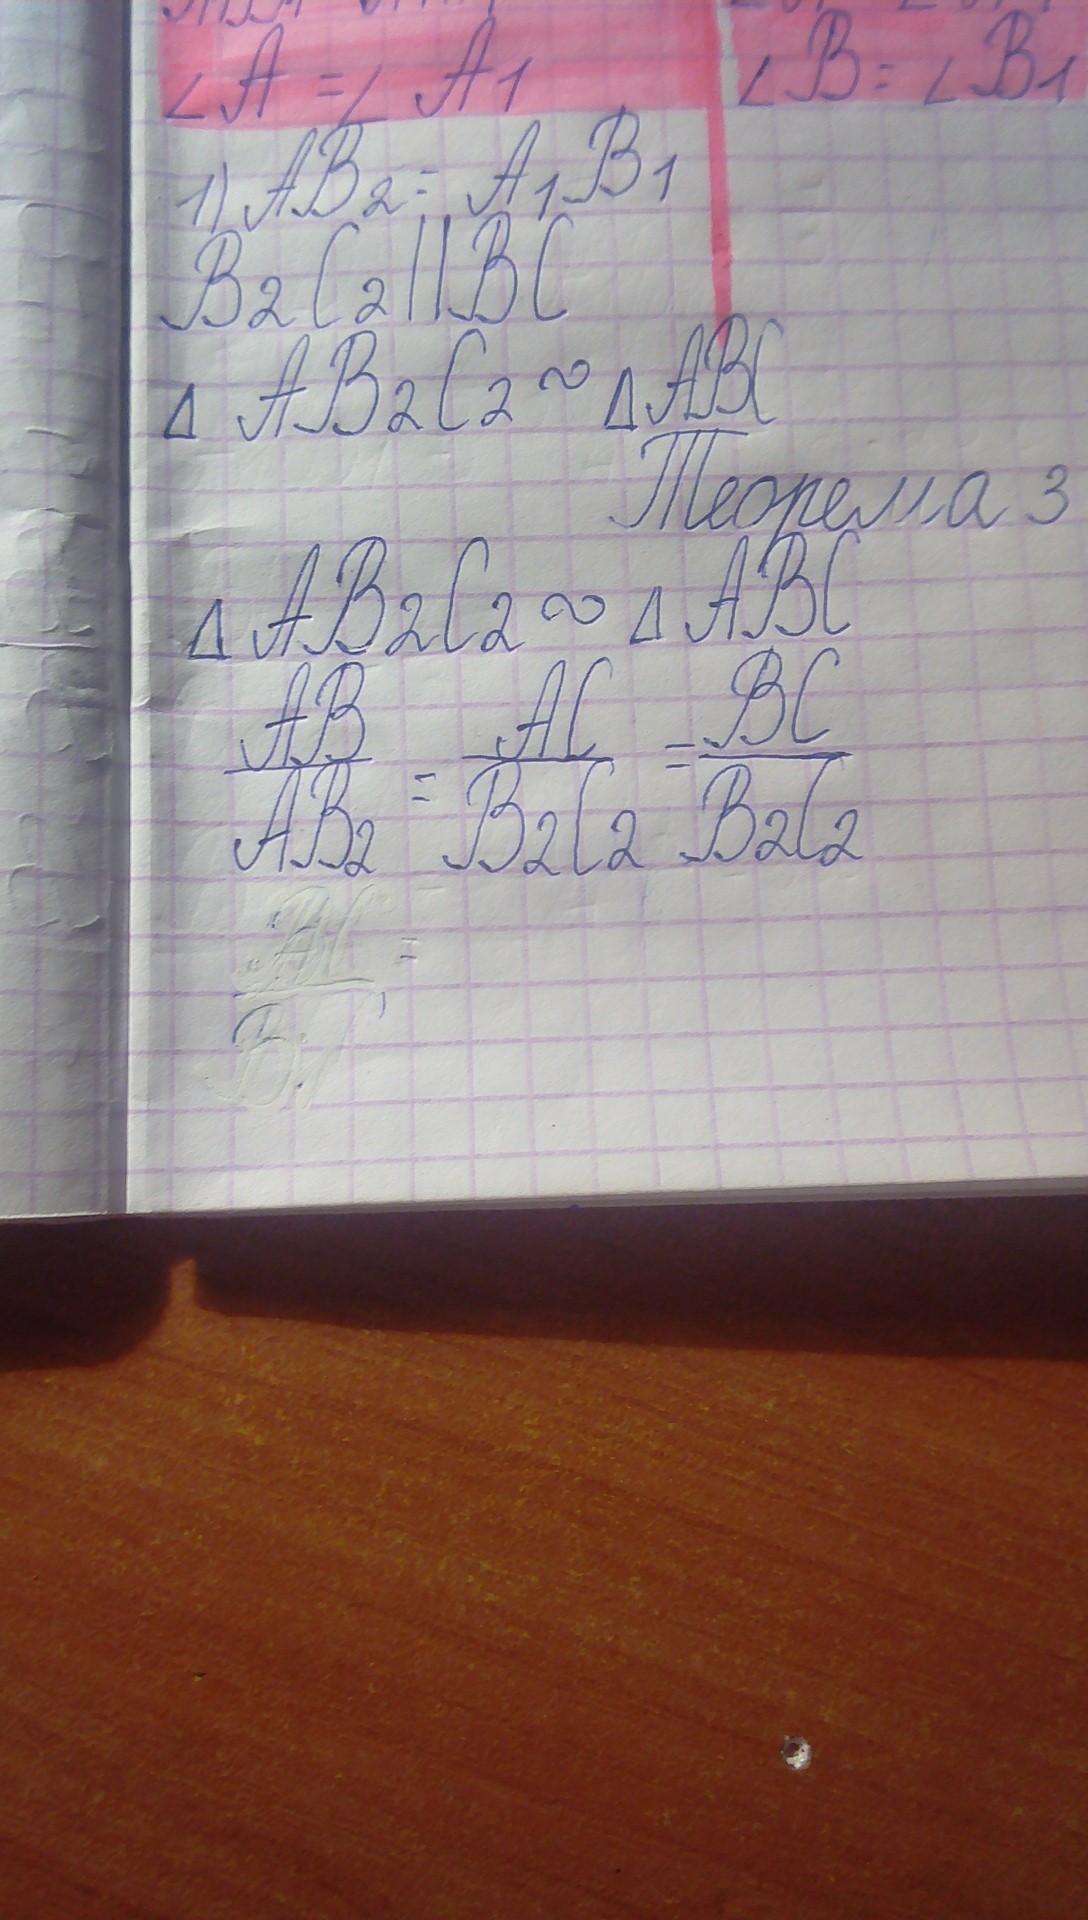 ∠A = ∠A1 ∠B = ∠B1
1) AB2 = A1B1
B2C2 || BC
Δ AB2C2 ~ Δ ABC
Теорема 3
Δ AB2C2 ~ Δ ABC
AB/AB2 = AC/B2C2 = BC/B2C2